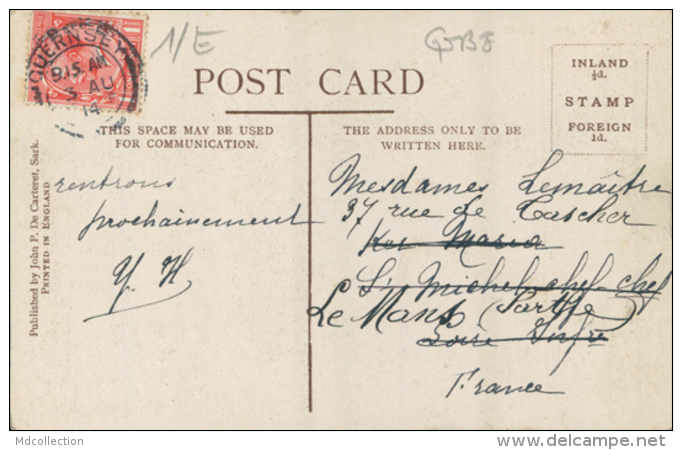 1/E
GB8
GUERNSEY
9.15 AM
3 AU
14
POST CARD
THIS SPACE MAY BE USED
FOR COMMUNICATION.
THE ADDRESS ONLY TO BE
WRITTEN HERE.
INLAND
½d.
STAMP
FOREIGN
1d.
Published by John P. De Carteret, Sark.
PRINTED IN ENGLAND
rentrons
prochainement
Y. H
Mesdames Lemaître
37 rue de Tascher
Ker Maria
St Michel chef-chef
Le Mans (Sarthe)
Loire Infre
France
Mdcollection
www.delcampe.net